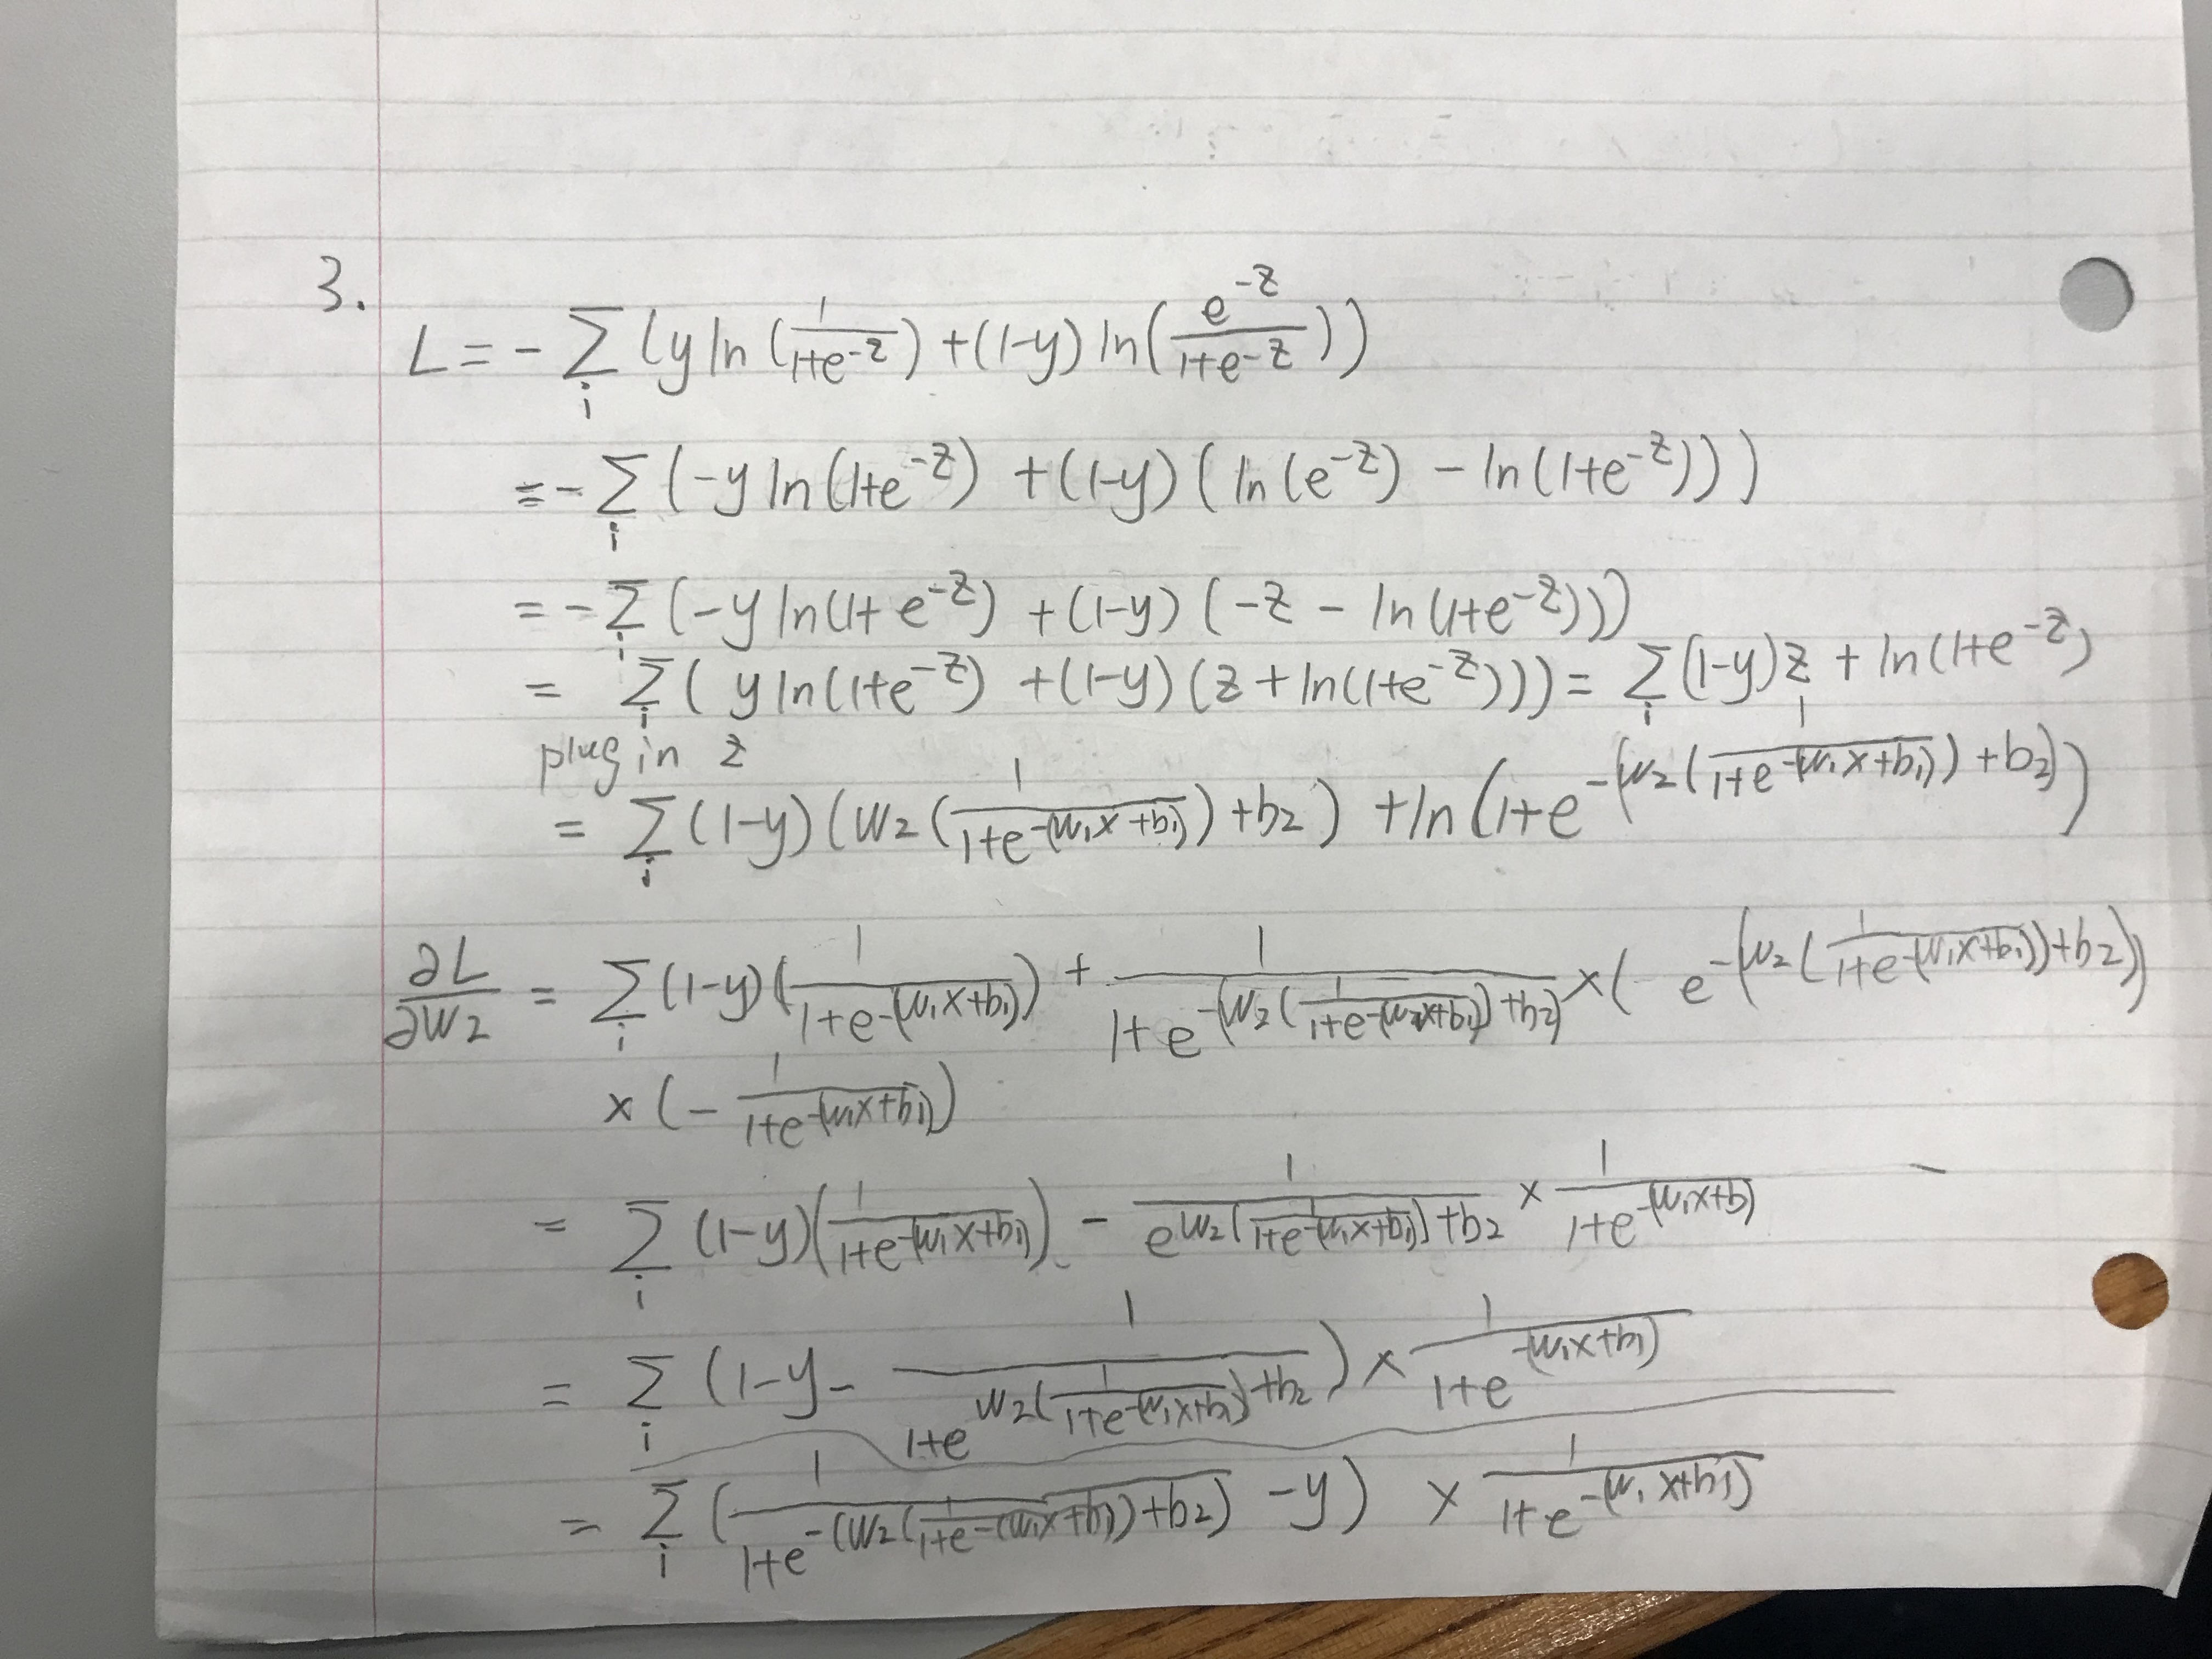 3.
L = - Σ_i (y ln(1/(1+e^-z)) + (1-y) ln(e^-z/(1+e^-z)))
= - Σ_i (-y ln(1+e^-z) + (1-y)(ln(e^-z) - ln(1+e^-z)))
= - Σ_i (-y ln(1+e^-z) + (1-y)(-z - ln(1+e^-z)))
= Σ_i (y ln(1+e^-z) + (1-y)(z + ln(1+e^-z))) = Σ_i (1-y)z + ln(1+e^-z)
plug in z
= Σ_i (1-y)(w₂(1/(1+e^-(w₁x+b₁))) + b₂) + ln(1+e^-(w₂(1/(1+e^-(w₁x+b₁))) + b₂))
∂L/∂w₂ = Σ_i (1-y)(1/(1+e^-(w₁x+b₁))) + 1/(1+e^-(w₂(1/(1+e^-(w₂x+b₁))) + b₂)) × (e^-(w₂(1/(1+e^-(w₁x+b₁))) + b₂))
× (- 1/(1+e^-(w₁x+b₁)))
= Σ_i (1-y)(1/(1+e^-(w₁x+b₁))) - 1/(e^w₂(1/(1+e^-(w₁x+b₁))) + b₂) × 1/(1+e^-(w₁x+b))
= Σ_i (1-y - 1/(1+e^w₂(1/(1+e^-(w₁x+b₁))) + b₂)) × 1/(1+e^-(w₁x+b₁))
= Σ_i (1/(1+e^-(w₂(1/(1+e^-(w₁x+b₁))) + b₂)) - y) × 1/(1+e^-(w₁x+b₁))